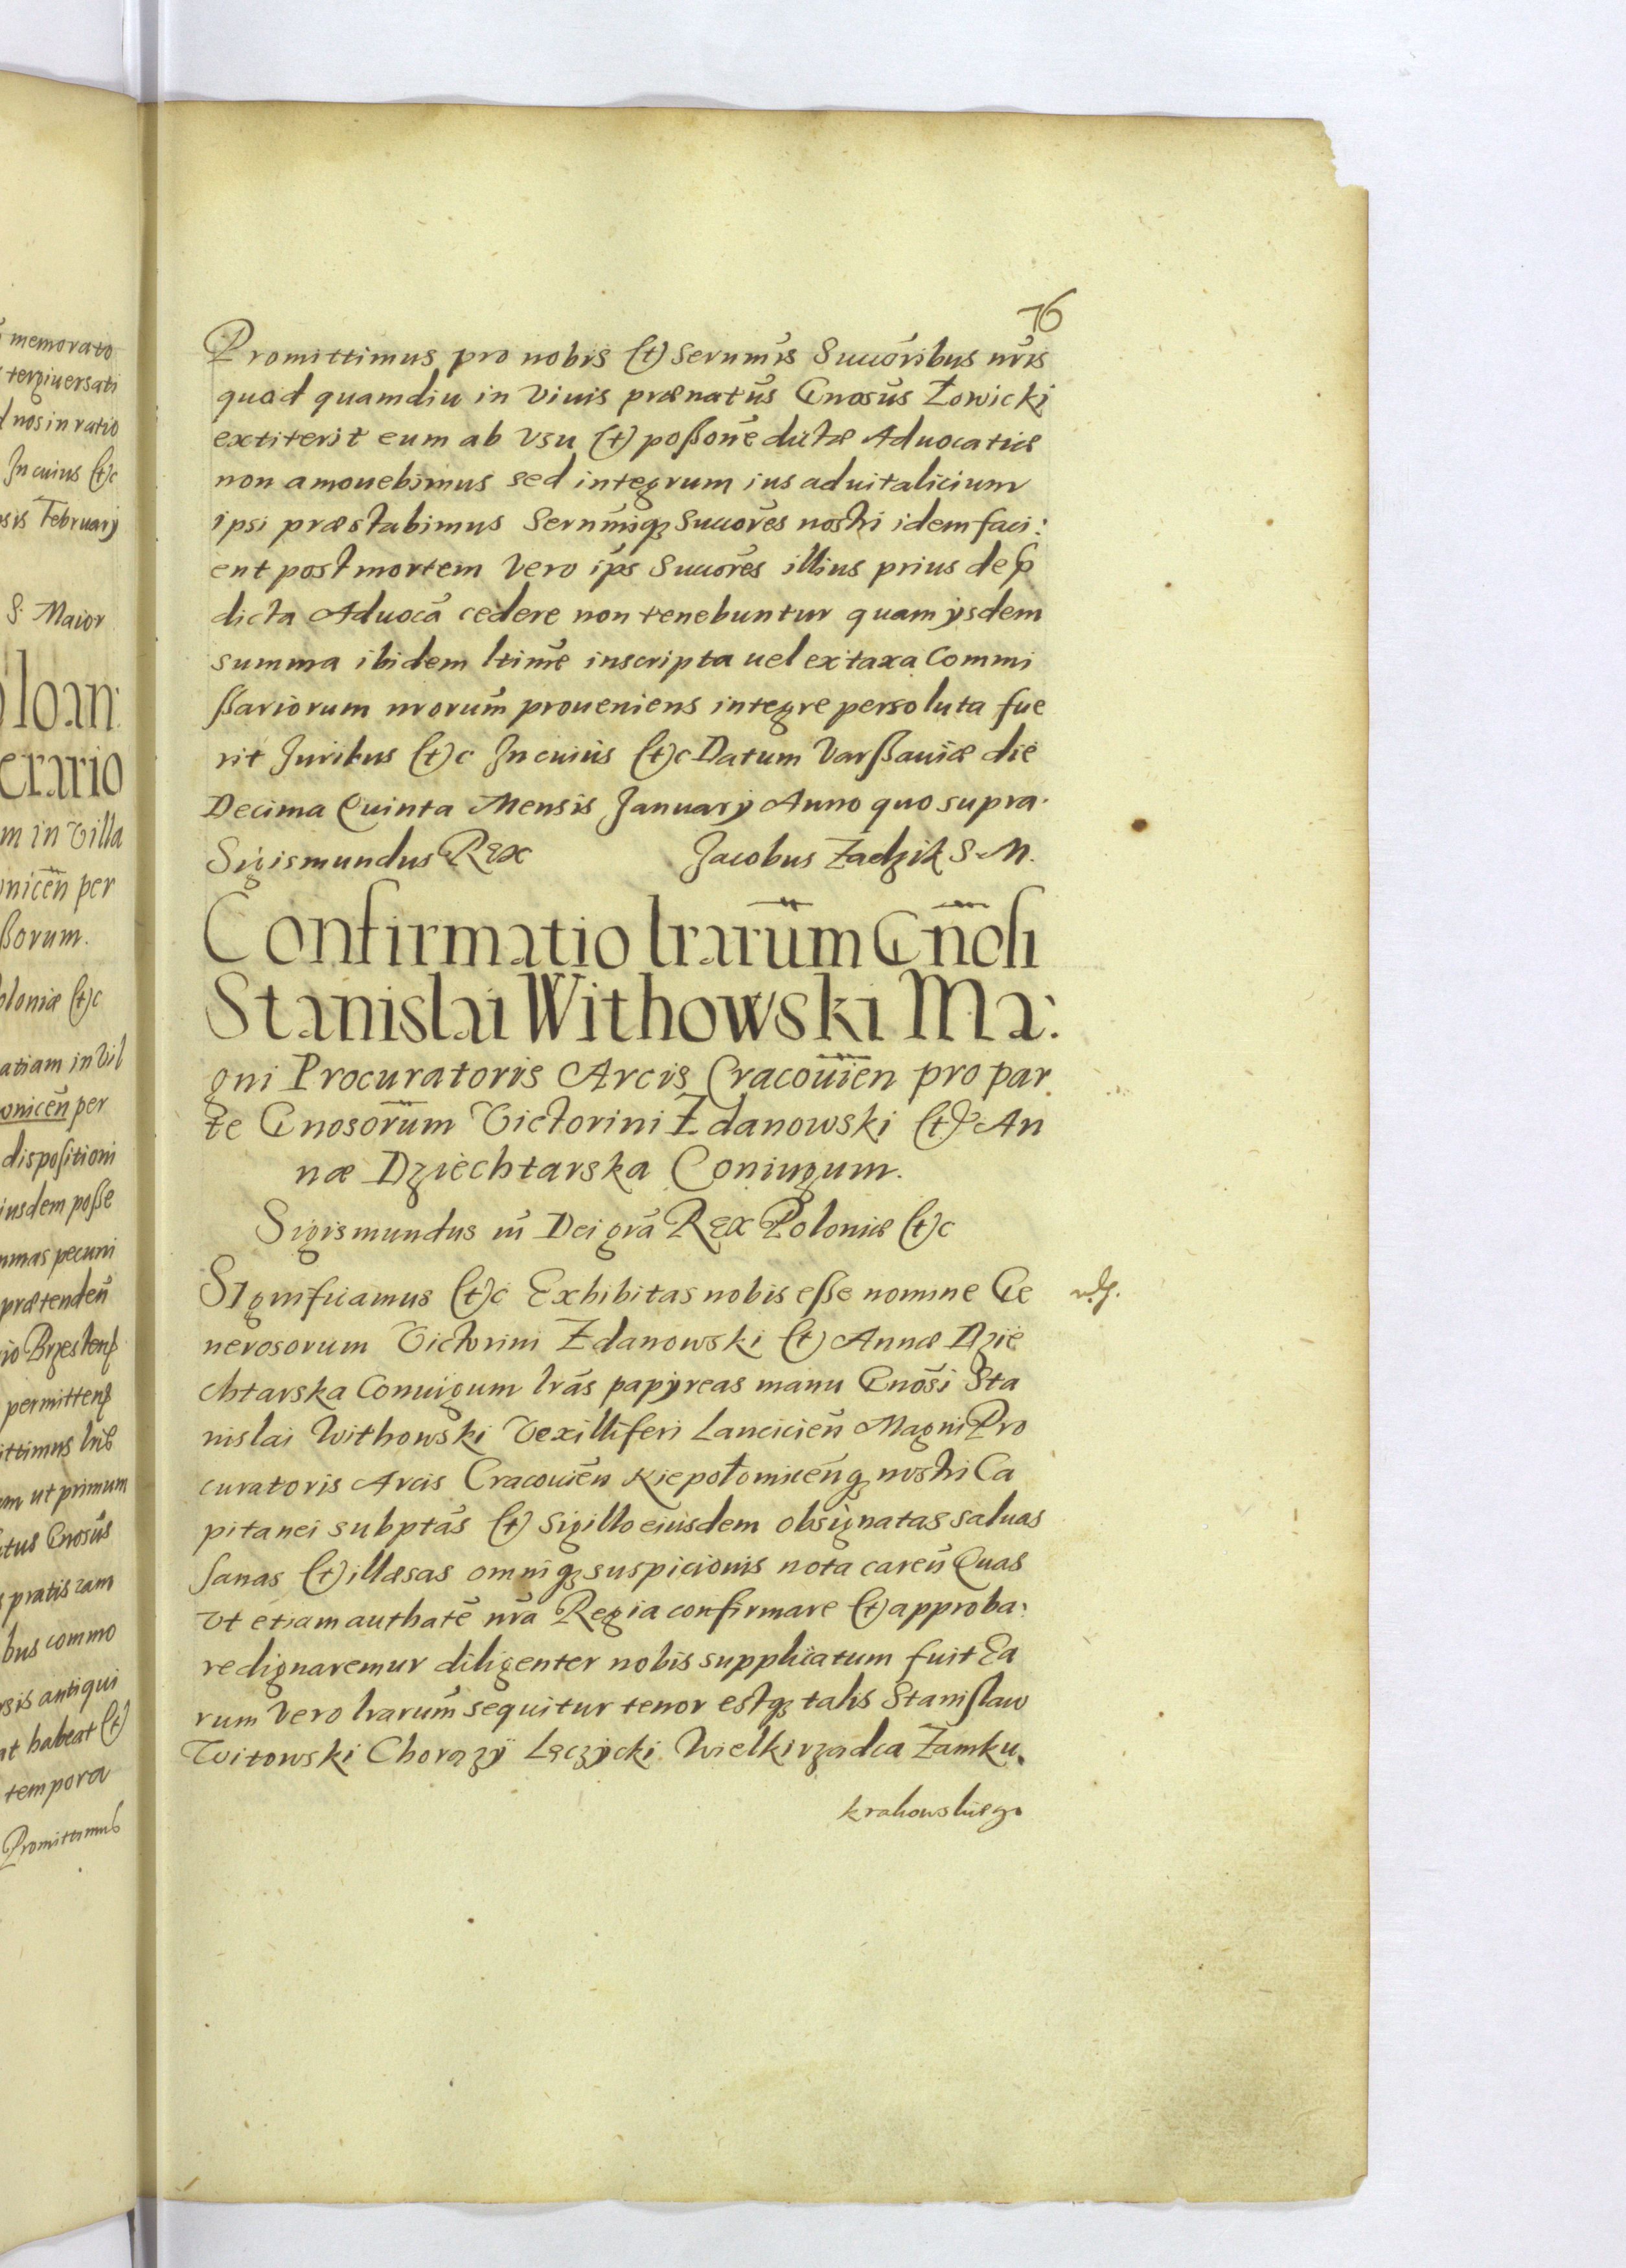 memorato
terginersati
d nos in ratio
In cuius (et)c
sis February
S. Maior
Ioan:
erario
m in Villa
onicen̄ per
ßorum.
oloniæ (et)c
atiam in Vil
onicen̄ per
dispositioni
iusdem poße
mmas pecuni
prætenden̄
io Brzestens
permittens
ittimus
um ut primum
tus Gnosus
pratis zam
bus commo
rsis antiqui
nt habeat (et)
tempora
Promittimus
76
Promittimus pro nobis (et) Serenmis Succoribus nris
quod quamdiu in viuis prænatus Gnosus Łowicki
extiterit eum ab vsu (et) poßone dictæ Aduocatiæ
non amouebimus sed integrum ius aduitalicium
ipsi præstabimus Sernmiqz Succores nostri idem faci:
ent post mortem vero ips Succores illius prius de p
dicta Aduoca cedere non tenebuntur quam ysdem
summa ibidem ltime inscripta uel ex taxa Commi
ßariorum nrorum proueniens integre persoluta fue
rit Juribus (et)c In cuius (et)c Datum Varßauiæ die
Decima Quinta Mensis January Anno quo supra.
Sigismundus Rex Jacobus Zadzik S. M.
Confirmatio lrarum Gnosi
Stanislai Withowski Ma:
gni Procuratoris Arcis Cracouien pro par
te Gnosorum Victorini Zdanowski (et) An
næ Dziechtarska Coniugum.
Sigismundus iii Dei gra Rex Poloniæ (et)c
Significamus (et)c Exhibitas nobis eße nomine Ge
nerosorum Victorini Zdanowski (et) Annæ Dzie
chtarska Coniugum lras papyreas manu Gnosi Sta
nislai Withowski Vexilliferi Lancicien Magni Pro
curatoris Arcis Cracouien Niepołomicenqz nostri Ca
pitanei subptas (et) Sigillo eiusdem obsignatas saluas
sanas (et) illæsas omniqz suspicionis nota caren Quas
vt etiam authate nra Regia confirmare (et) approba:
re dignaremur diligenter nobis supplicatum fuit Ea
rum vero lrarum sequitur tenor estqz talis Stanisław
Witowski Chorązÿ Łęczÿcki Wielki rządca Zamku
krakowskiego